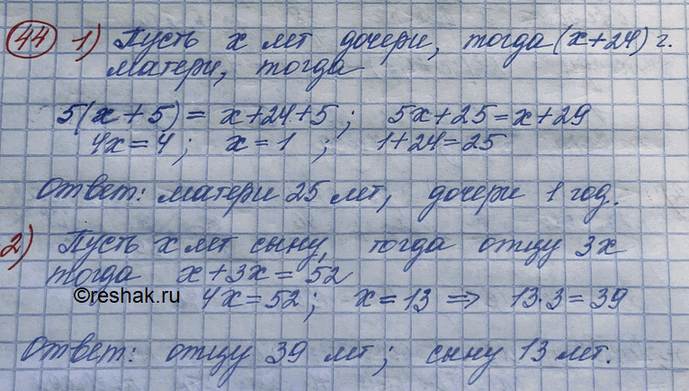 44 1) Пусть x лет дочери, тогда (x+24) г.
матери, тогда
5(x+5) = x+24+5; 5x+25=x+29
4x=4; x=1; 1+24=25
Ответ: матери 25 лет, дочери 1 год.
2) Пусть x лет сыну, тогда отцу 3x
тогда x+3x=52
©reshak.ru 4x=52; x=13 => 13·3=39
Ответ: отцу 39 лет; сыну 13 лет.